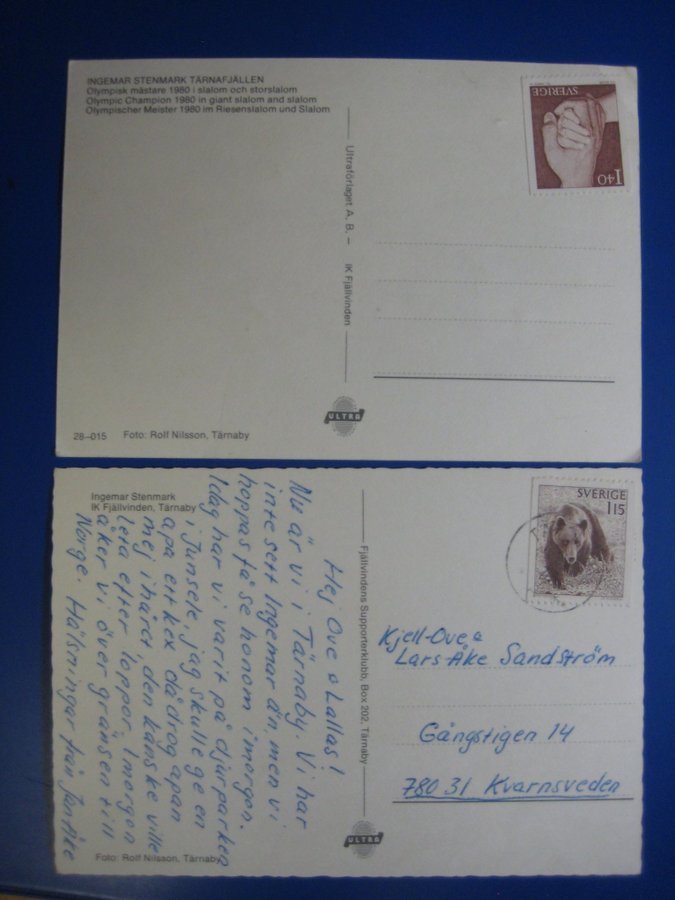 INGEMAR STENMARK TÄRNAFJÄLLEN
Olympisk mästare 1980 i slalom och storslalom
Olympic Champion 1980 in giant slalom and slalom
Olympischer Meister 1980 im Riesenslalom und Slalom
Ultraförlaget A. B. – IK Fjällvinden
SVERIGE
1 40
ULTRA
28–015 Foto: Rolf Nilsson, Tärnaby
Ingemar Stenmark
IK Fjällvinden, Tärnaby
Hej Ove o Lallas!
Nu är vi i Tärnaby. Vi har
inte sett Ingemar än men vi
hoppas få se honom i morgon.
Idag har vi varit på djurparken
i Junsele, jag skulle ge en
apa ett kex då drog apan
mej i håret den kanske ville
leta efter loppor. Imorgon
åker vi över gränsen till
Norge. Hälsningar från Jan-Åke
Foto: Rolf Nilsson, Tärnaby
Fjällvindens Supporterklubb, Box 202, Tärnaby
ULTRA
SVERIGE
1 15
Kjell-Ove o
Lars-Åke Sandström
Gångstigen 14
780 31 Kvarnsveden